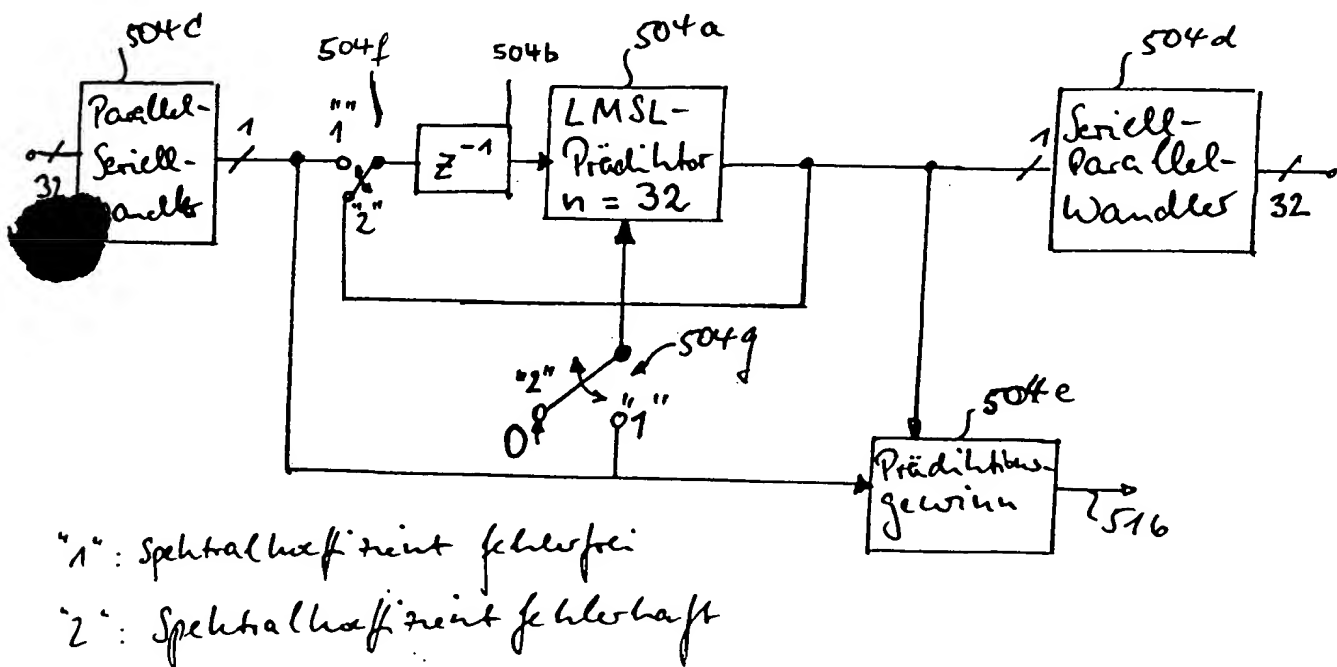 504c
504f
504b
504a
504d
Parallel-
Seriell-
andler
32
1
"1"
"2"
z⁻¹
LMSL-
Prädiktor
n = 32
1
Seriell-
Parallel-
Wandler
32
504g
"2"
"1"
0
504e
Prädiktions-
gewinn
516
"1": Spektralkoeffizient fehlerfrei
"2": Spektralkoeffizient fehlerhaft